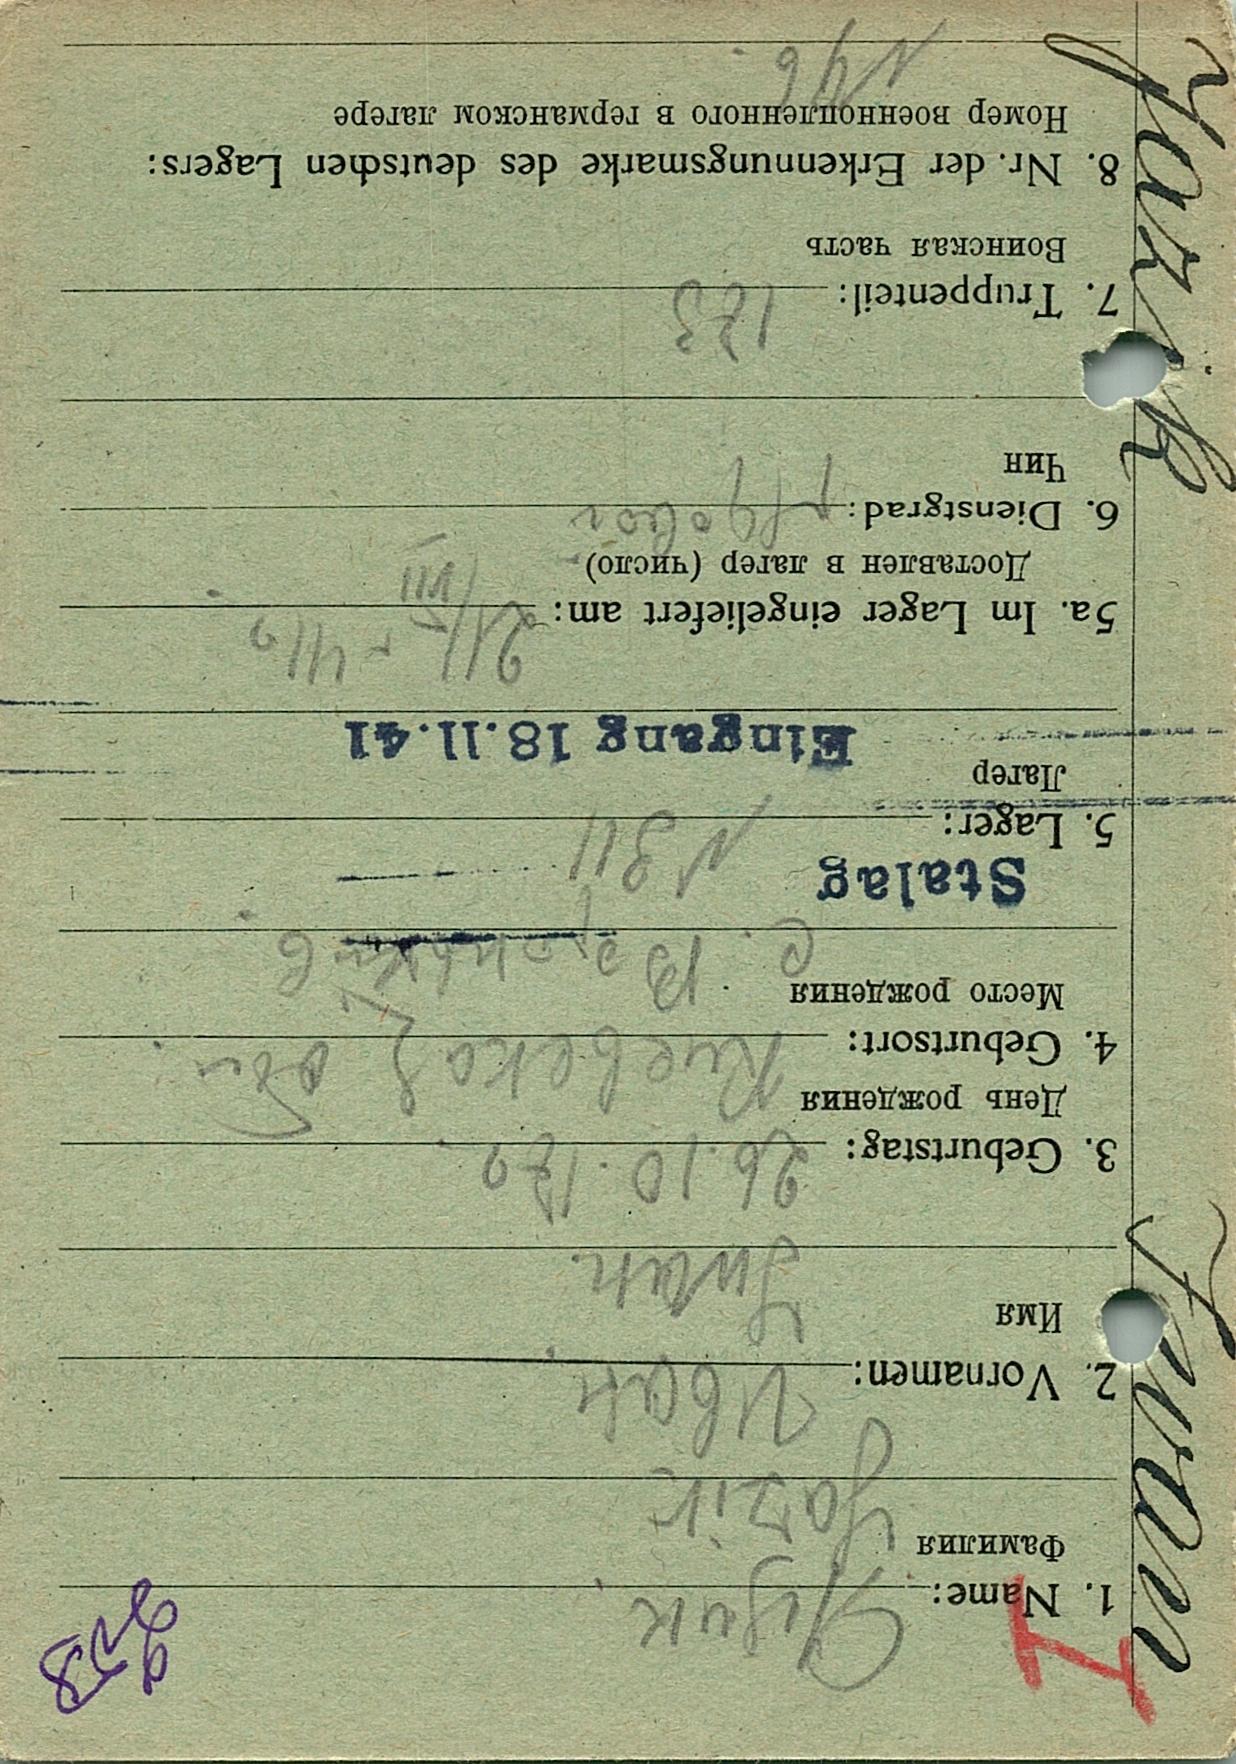 Yazik Iwan
I
1. Name:
Фамилия
Yazik
2. Vornamen: Иван
Имя
Iwan
3. Geburtstag: 26.10.
День рождения
4. Geburtsort: Киевская обл.
Место рождения
с.
Stalag
5. Lager: N 311
Лагер
Eingang 18.11.41
5a. Im Lager eingeliefert am: 21/VII - 41 г
Доставлен в лагер (число)
6. Dienstgrad: рядовой
Чин
7. Truppenteil:
Воинская часть
8. Nr. der Erkennungsmarke des deutschen Lagers:
Номер военнопленного в германском лагере